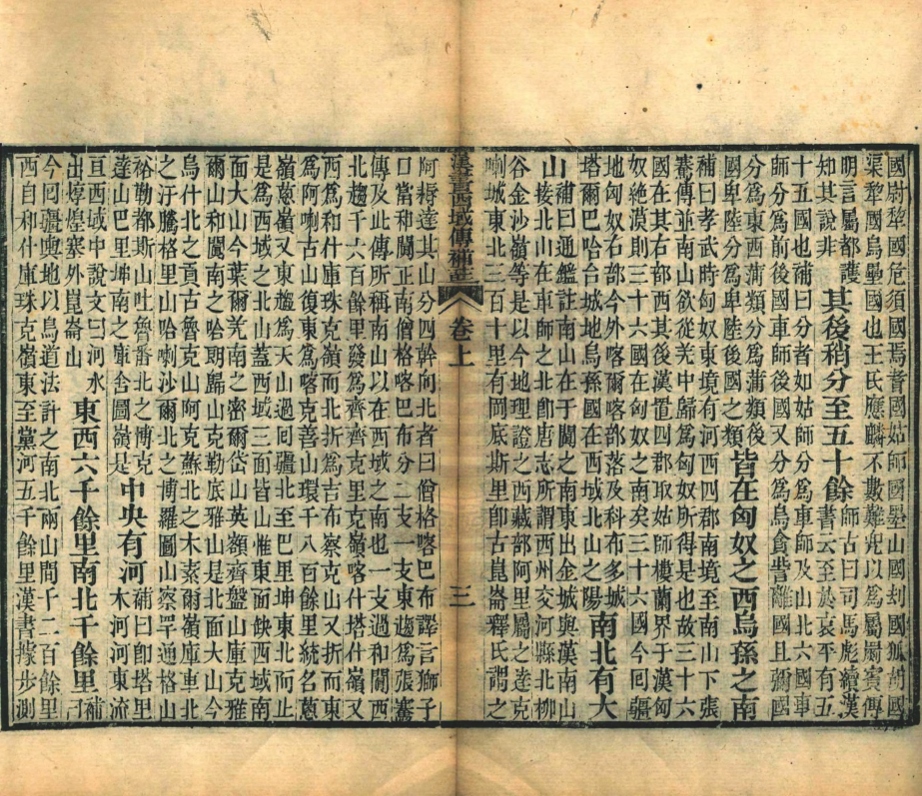 國尉犁國危須國焉耆國姑師國墨山國刦國狐胡國
渠犁國烏壘國也王氏應麟不數難兜以為屬罽賓傳
明言屬都護
知其說非
其後稍分至五十餘
師古曰司馬彪續漢
書云至於哀平有五
十五國也補曰分者如姑師分為車師及山北六國車
師分為前後國車師後國又分為烏貪訾離國且彌國
分為東西蒲類分為蒲類後
國卑陸分為卑陸後國之類
皆在匈奴之西烏孫之南
補曰孝武時匈奴東境有河西四郡南境至南山下張
騫傳並南山欲從羌中歸為匈奴所得是也故三十六
國在其右部西其後漢置四郡取姑師樓蘭界于漢匈
奴絕漠則三十六國在匈奴之南矣三十六國今囘疆
地匈奴右部今外喀爾喀部落及科布多城
塔爾巴哈台城地烏孫國在西域北山之陽
南北有大
山
補曰通鑑註南山在于闐之南東出金城與漢南山
接北山在車師之北即唐志所謂西州交河縣北柳
谷金沙嶺等是以今地理證之西藏部阿里屬之達克
喇城東北三百十里有岡底斯里即古崑崙釋氏謂之
漢書西域傳補註 卷上 三
阿耨達其山分四幹向北者曰僧格喀巴布譯言獅子
口當和闐正南僧格喀巴布分二支一支東趨為張騫
傳及此傳所稱南山以在西域之南也一支過和闐西
北趨千六百餘里發為齊齊克里克嶺喀什塔什嶺又
西為和什庫珠克嶺而北折為吉布察克山又折而東
為阿喇古山復東為喀克善山環千八百餘里統名蔥
嶺蔥嶺又東趨為天山過囘疆北至巴里坤東北而止
是為西域之北山蓋西域三面皆山惟東面缺西域南
面大山今葉爾羌南之密爾岱山英額齊盤山庫克雅
爾山和闐南之哈朗歸山克勒底雅山是北面大山今
烏什北之貢古魯克山阿克蘇北之木素爾嶺庫車北
之汗騰格里山哈喇沙爾北之博羅圖山察罕通格山
裕勒都斯山吐魯番北之博克
達山巴里坤南之庫舍圖嶺是
中央有河
補曰即塔里
木河河東流
亘西域中說文曰河水
出燉煌塞外崑崙山
東西六千餘里南北千餘里
補
曰
今囘疆輿地以鳥道法計之南北兩山間千二百餘里
西自和什庫珠克嶺東至黨河五千餘里漢書據步測